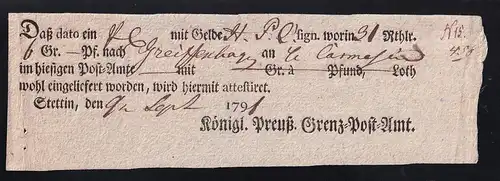 Daß dato ein P C mit Gelde H. P. C. sign. worin 31 Rthlr. N 15.
6 Gr. – Pf. nach Greiffenhagen an
im hiesigen Post-Amte mit Gr. à Pfund, Loth
wohl eingeliefert worden, wird hiermit attestiret.
Stettin, den Sept 1791
Königl. Preuß. Grenz-Post-Amt.